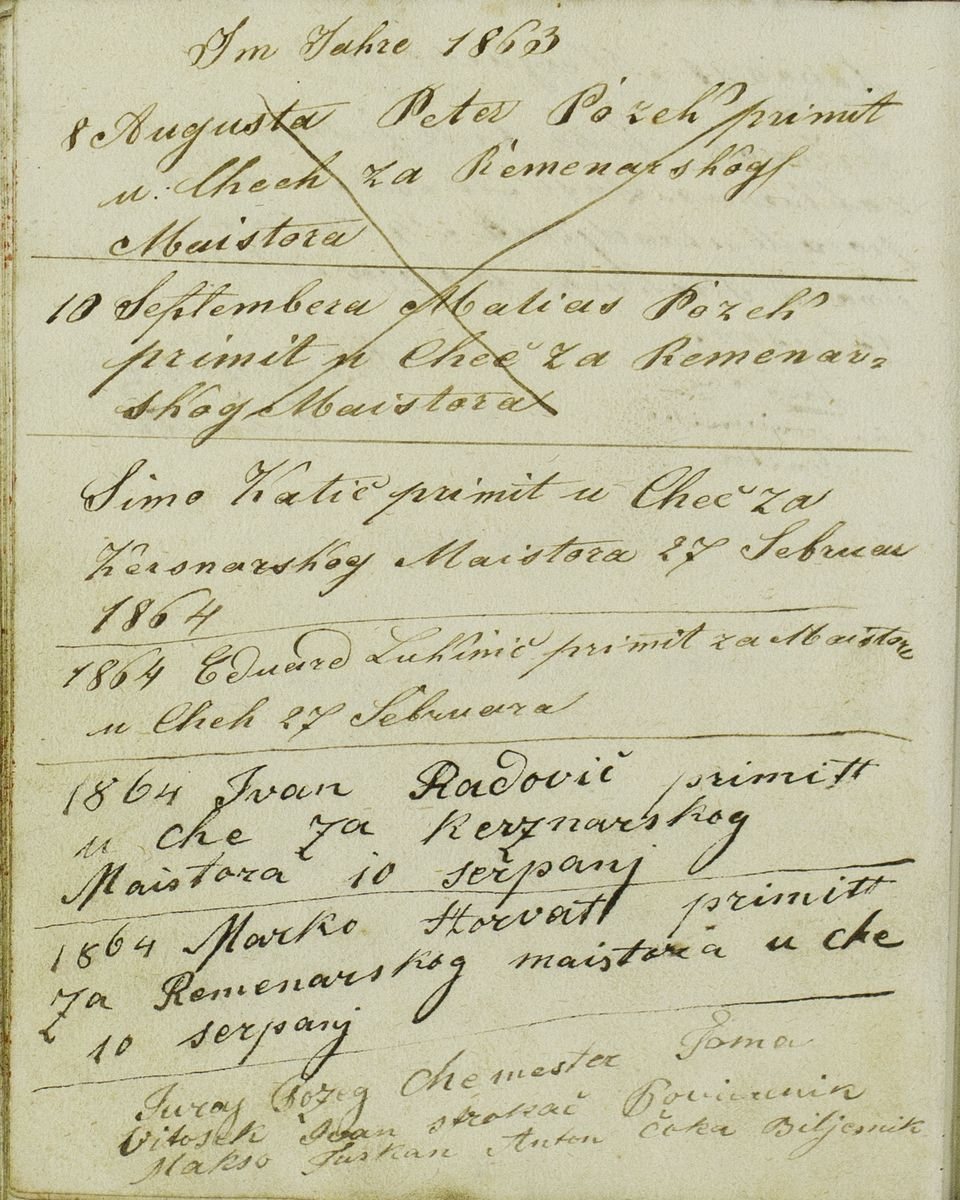 Im Jahre 1863
8 Augusta Peter Pozeh primit
u Chech za Remenarskog
Maistora
10 Septembera Matias Pozeh
primit u Cheč za Remenar-
skog Maistora
Simo Katič primit u Cheč za
Kersnarskog Maistora 27 Februar
1864
1864 Eduard Lukinič primit za Maistora
u Cheh 27 Februara
1864 Ivan Radovič primitt
u che za Kerznarskog
Maistora 10 serpanj
1864 Marko Horvat primitt
za Remenarskog maistora u che
10 serpanj
Juraj Požeg Chemester Toma
Vitosek Ivan strokač
Makso Furkan Anton Čoka Biljemik